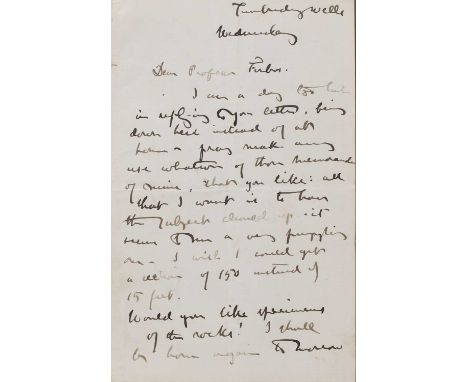 Tunbridge Wells
Wednesday
Dear Professor Forbes.
I am a day too late
in replying to your letter, being
down here instead of at
home - pray make any
use whatever of those memoranda
of mine, that you like: all
that I want is to have
the subject cleared up - it
seems to me a very puzzling
one - I wish I could get
a section of 150 instead of
15 feet.
Would you like specimens
of the rocks? I shall
be home again tomorrow